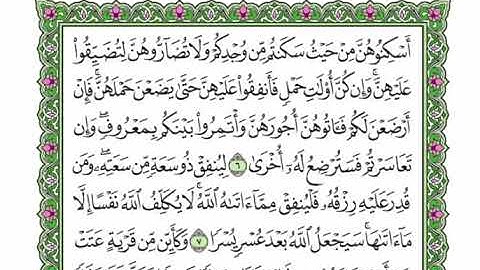 أَسْكِنُوهُنَّ مِنْ حَيْثُ سَكَنتُم مِّن وُجْدِكُمْ وَلَا تُضَآرُّوهُنَّ لِتُضَيِّقُوا۟
عَلَيْهِنَّ ۚ وَإِن كُنَّ أُو۟لَٰتِ حَمْلٍ فَأَنفِقُوا۟ عَلَيْهِنَّ حَتَّىٰ يَضَعْنَ حَمْلَهُنَّ ۚ فَإِنْ
أَرْضَعْنَ لَكُمْ فَـَٔاتُوهُنَّ أُجُورَهُنَّ ۖ وَأْتَمِرُوا۟ بَيْنَكُم بِمَعْرُوفٍ ۖ وَإِن
تَعَاسَرْتُمْ فَسَتُرْضِعُ لَهُۥٓ أُخْرَىٰ ٦ لِيُنفِقْ ذُو سَعَةٍ مِّن سَعَتِهِۦ ۖ وَمَن
قُدِرَ عَلَيْهِ رِزْقُهُۥ فَلْيُنفِقْ مِمَّآ ءَاتَىٰهُ ٱللَّهُ ۚ لَا يُكَلِّفُ ٱللَّهُ نَفْسًا إِلَّا
مَآ ءَاتَىٰهَا ۚ سَيَجْعَلُ ٱللَّهُ بَعْدَ عُسْرٍ يُسْرًا ٧ وَكَأَيِّن مِّن قَرْيَةٍ عَتَتْ